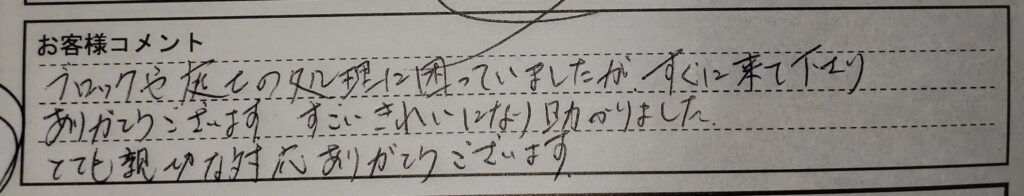 お客様コメント
ブロックや庭土の処理に困っていましたが、すぐに来て下さり
ありがとうございます すごいきれいになり助かりました。
とても親切な対応ありがとうございます